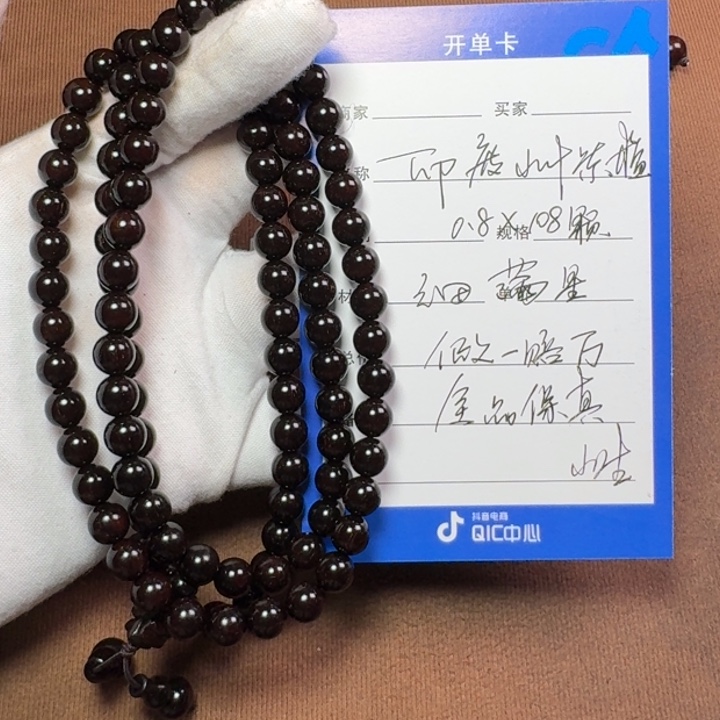 开单卡
商家 买家
名称 印度小叶紫檀
规格 0.8×108颗
材 细 星
总价 假一赔百
全品保真
抖音电商
QIC中心